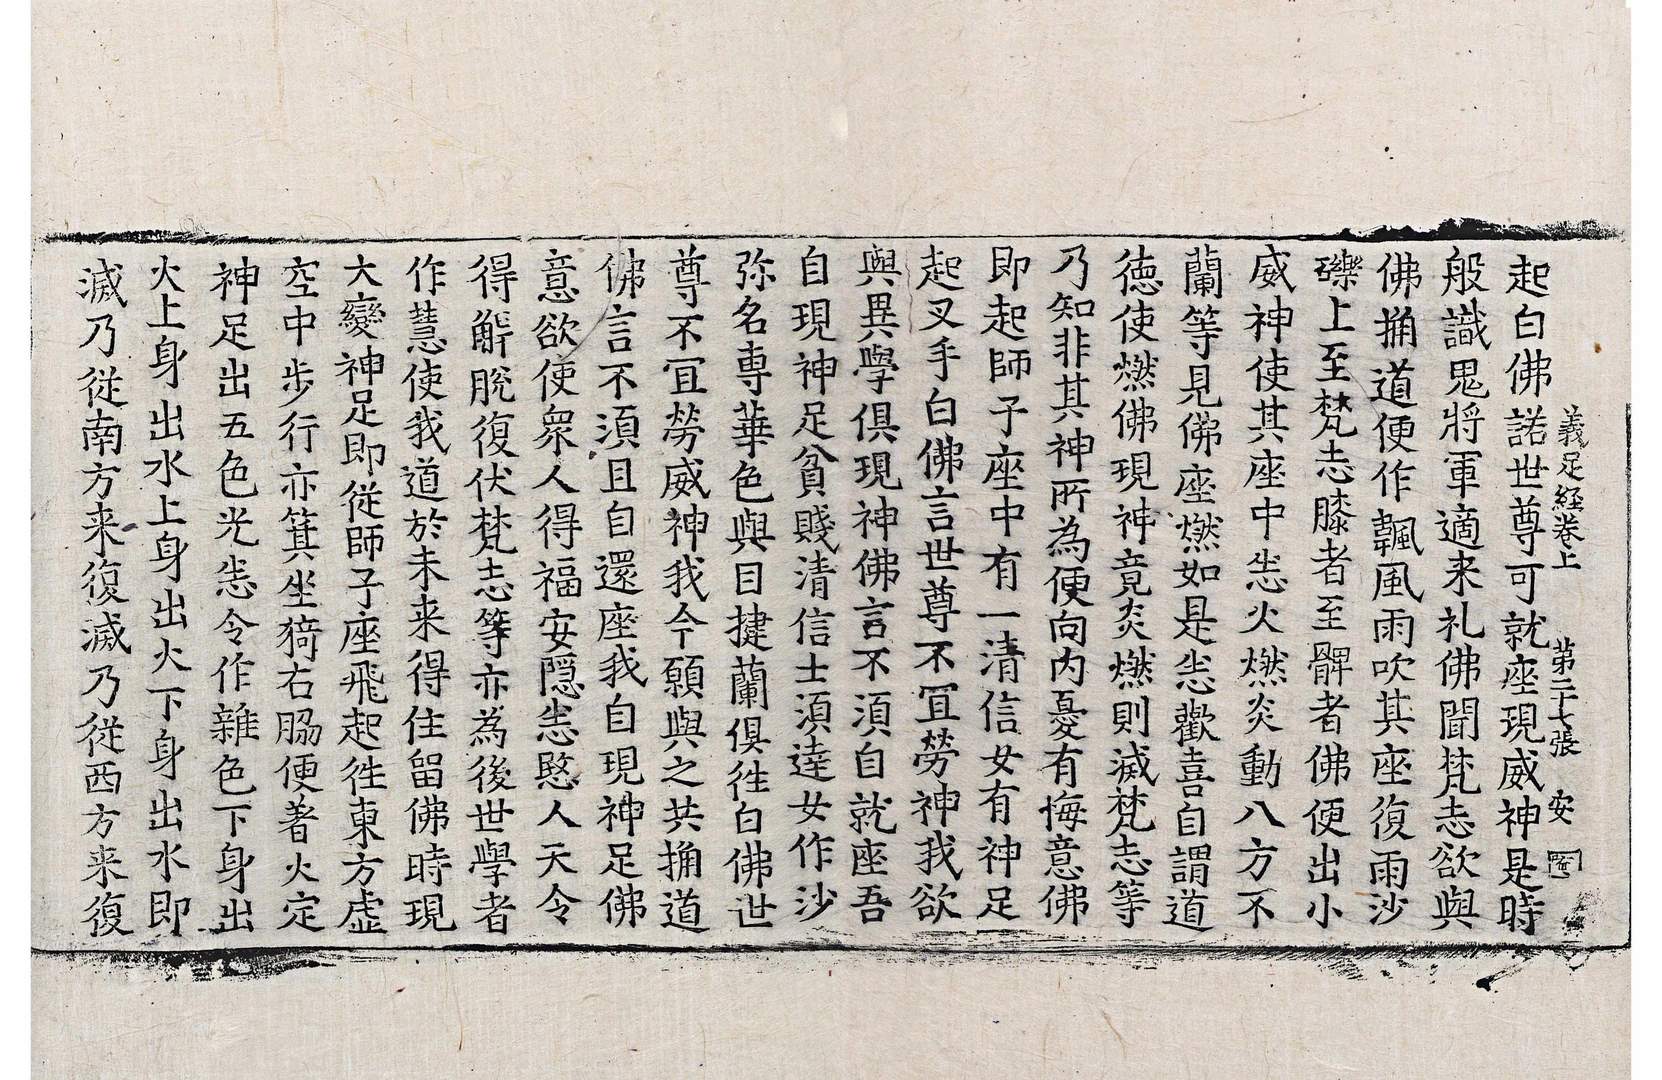 義足経卷上　第二十七張　安
起白佛諾世尊可就座現威神是時
般識鬼將軍適来礼佛聞梵志欲與
佛捔道便作飄風雨吹其座復雨沙
礫上至梵志膝者至髀者佛便出小
威神使其座中㤙火燃炎動八方不
蘭等見佛座燃如是㤙歡喜自謂道
徳使燃佛現神竟炎燃則滅梵志等
乃知非其神所為便向内憂有悔意佛
即起師子座中有一清信女有神足
起叉手白佛言世尊不冝勞神我欲
與異學俱現神佛言不湏自就座吾
自現神足貧賤清信士湏達女作沙
弥名専華色與目揵蘭俱徃白佛世
尊不冝勞威神我今願與之共捔道
佛言不湏且自還座我自現神足佛
意欲使衆人得福安隠㤙愍人天令
得解脫復伏梵志等亦為後世學者
作慧使我道於未来得住留佛時現
大變神足即從師子座飛起徃東方虚
空中步行亦箕坐猗右脇便著火定
神足出五色光㤙令作雜色下身出
火上身出水上身出火下身出水即
滅乃從南方来復滅乃從西方来復